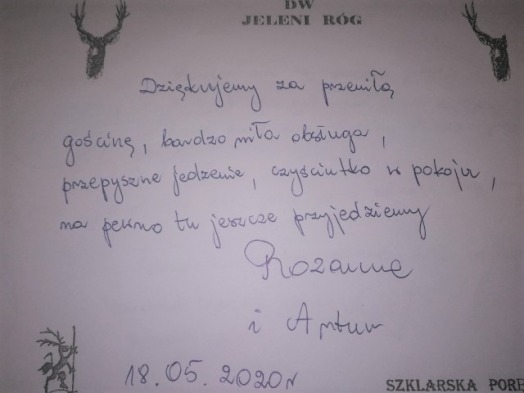 DW
JELENI RÓG
Dziękujemy za przemiłą
gościnę, bardzo miła obsługa,
przepyszne jedzenie, czyściutko w pokoju,
na pewno tu jeszcze przyjedziemy
Rozanna
i Artur
18.05.2020r
SZKLARSKA PORĘ